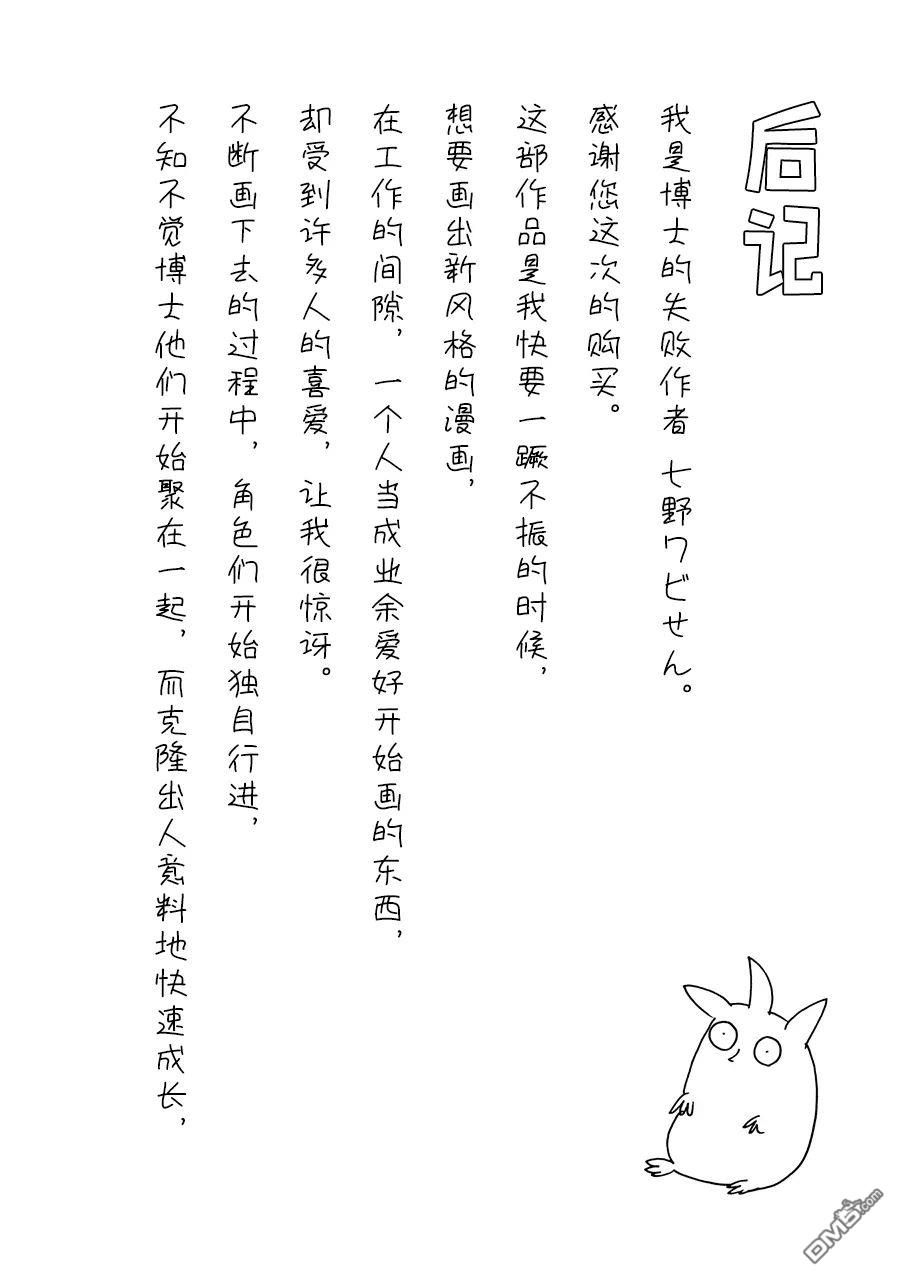 后记
我是博士的失败作者 七野ワビせん。
感谢您这次的购买。
这部作品是我快要一蹶不振的时候，
想要画出新风格的漫画，
在工作的间隙，一个人当成业余爱好开始画的东西，
却受到许多人的喜爱，让我很惊讶。
不断画下去的过程中，角色们开始独自行进，
不知不觉博士他们开始聚在一起，而克隆出人意料地快速成长，
DM5.com